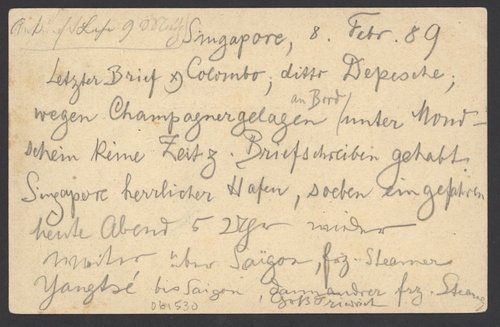 Singapore, 8. Febr. 89
Letzter Brief Colombo; ditto Depesche;
wegen Champagnergelagen an Bord unter Mond-
schein keine Zeit z. Briefschreiben gehabt
Singapore herrlicher Hafen, soeben eingefahren
heute Abend 5 Uhr wieder
weiter über Saigon, frz. Steamer
Yangtsé bis Saigon, dann andrer frz. Steamer
061530